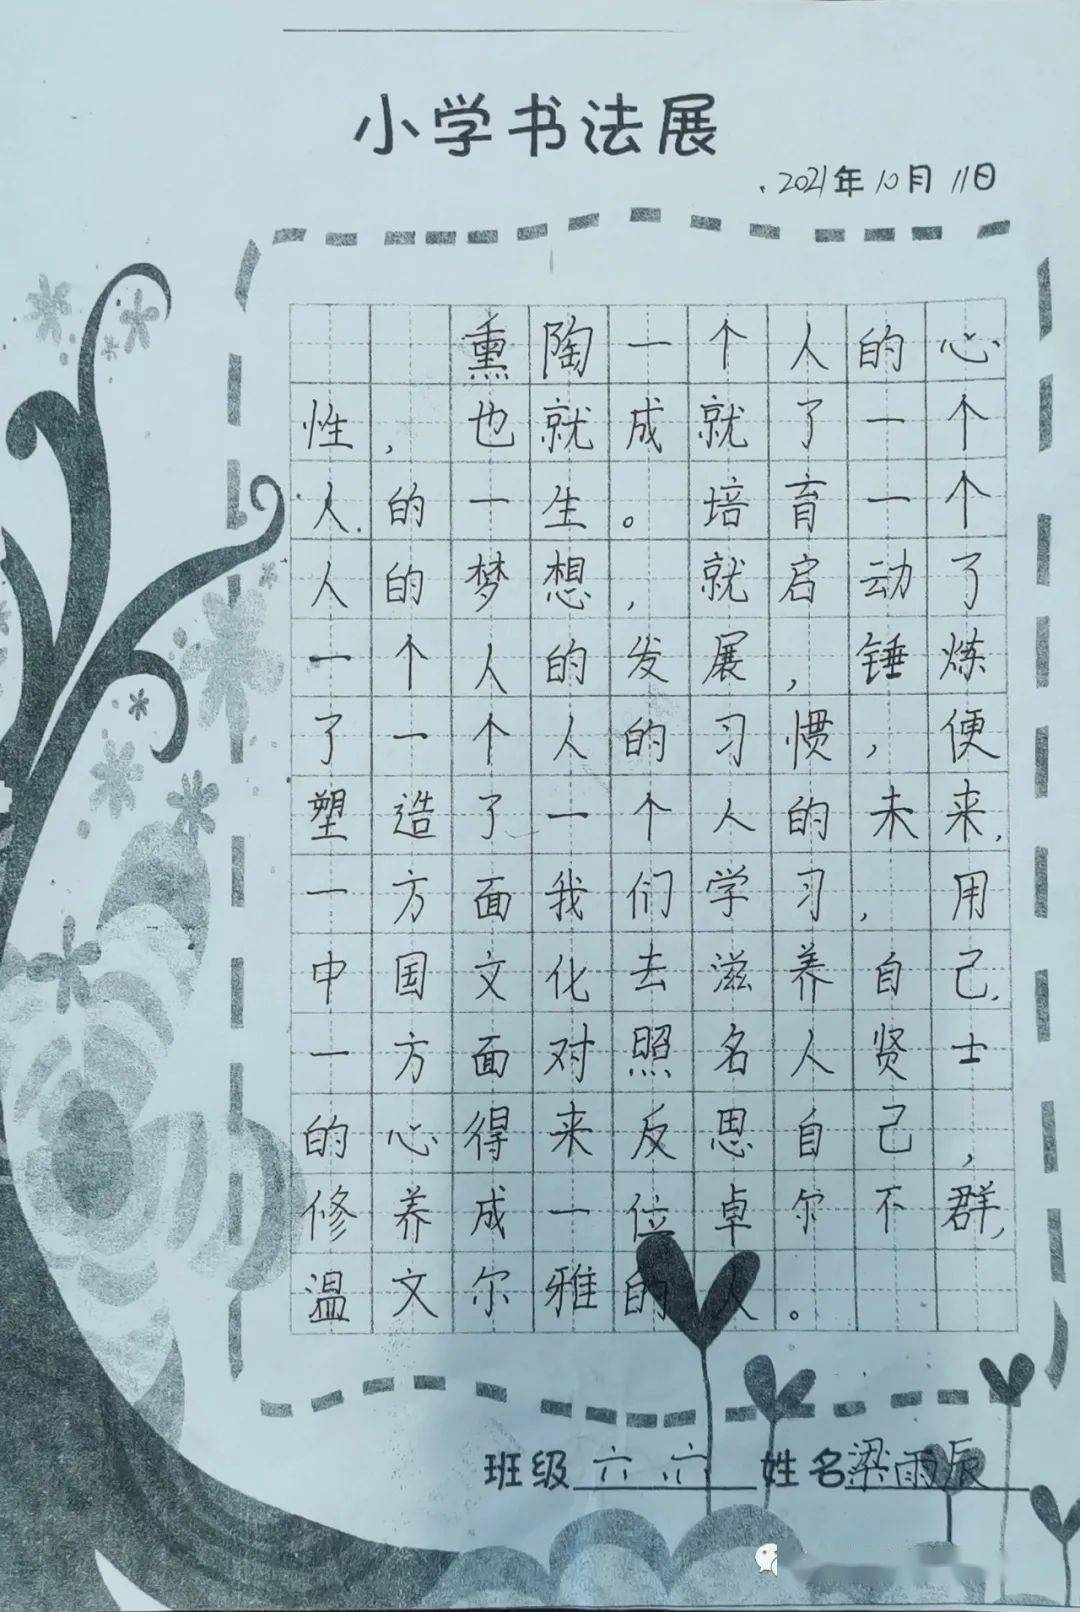 小学书法展
2021年10月11日
熏陶一个人的心
性，也就成就了一个
人的一生。培育一个
人的梦想，就启动了
一个人的发展，锤炼
了一个人的习惯，便
塑造了一个人的未来，
一方面我们学习，用
中国文化去滋养自己，
一方面对照名人贤士
的心得来反思自己，
修养成一位卓尔不群，
温文尔雅的人。
班级六六 姓名梁雨辰